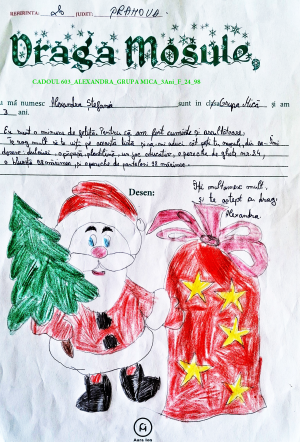 REFERINTA: 20 JUDET: PRAHOVA
Draga Mosule,
CADOUL 603_ALEXANDRA_GRUPA MICA_3Ani_F_24_98
u mă numesc Alexandra Ștefania sunt in clasa Grupa Mică și am
3 ani.
Eu sunt o minune de fetiță. Pentru că am fost cuminte și ascultătoare,
Te rog mult să te uiți pe această listă și să-mi aduci cât poți tu
dulciuri, o păpușă, plastilină, un joc educativ, o pereche de ghete nr. 24,
o bluziță 98 mărimea, și o pereche de pantaloni 98 mărimea.
Desen:
Îți mulțumesc mult,
și te aștept cu drag!
Alexandra
Aura Ion